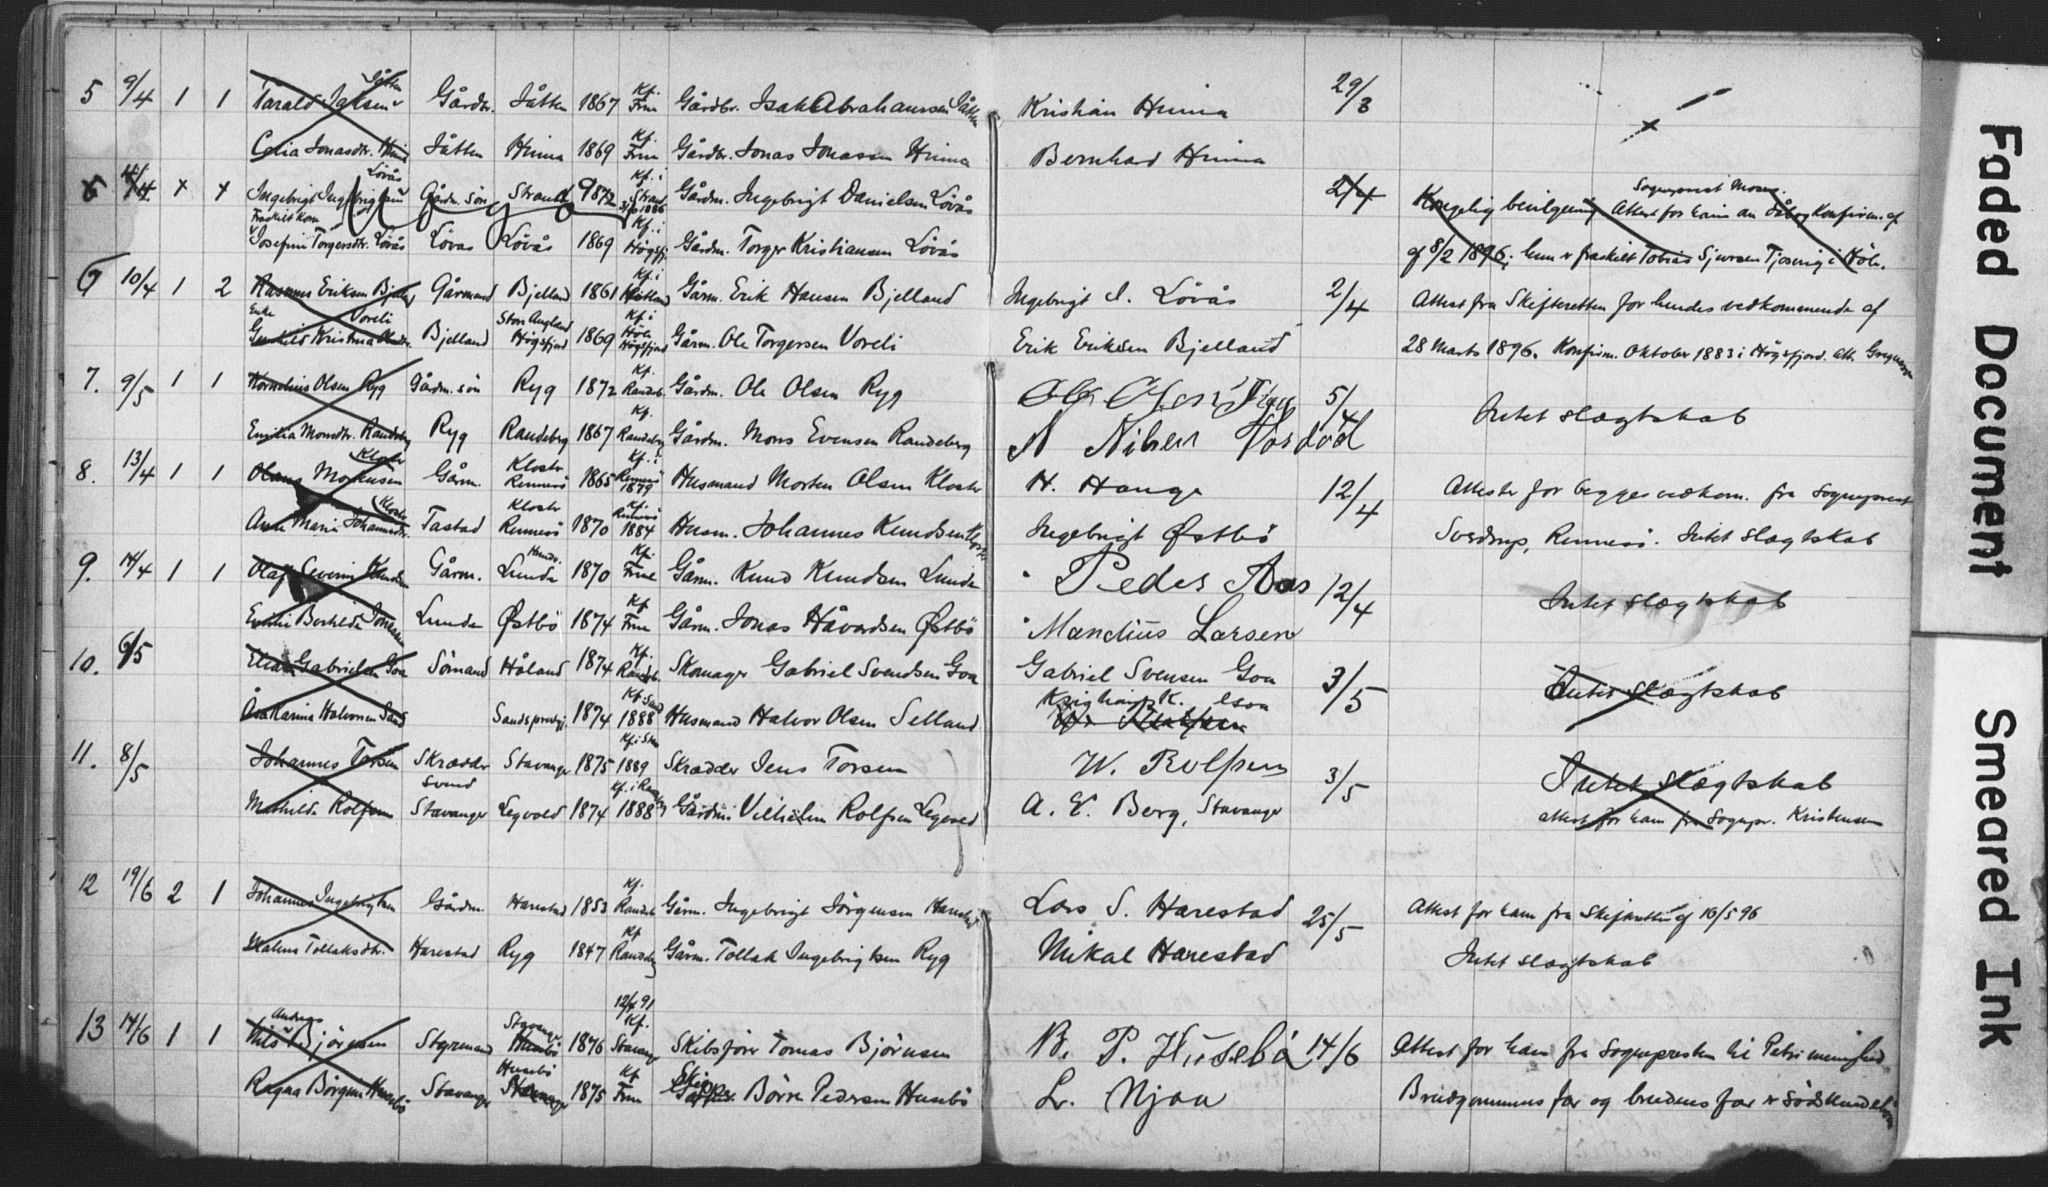 5 9/4 1 1 Tarald Jåtten Gårdbr. Jåtten 1867 Kf. Frue Gårdbr. Isak Abrahamsen Jåtten Kristian Hinna 29/3
Celia Jonasdtr. Hinna Jåtten Hinna 1869 Kf. Frue Gårdbr. Jonas Jonasen Hinna Bernhard Hinna
6 4/4 Ingebrigt Ingebrigtsen Lövås Gårdm. sön Strand 1872 Kf. i Strand 1886 Gårdm. Ingebrigt Danielsen Lövås 2/4 Kongelig bevilgning Attest for ham an Sogneprest Konfirm. af
Fraskilt kom Josefine Torgersdtr. Lövås Lövås Lövås 1869 Kf. i Högsfj. Gårdm. Torger Kristiansen Lövås af 8/2 1896, hun er fraskilt Tobias Sjursen i Höle.
6 10/4 1 2 Rasmus Eriksen Bjelland Gårmand Bjelland 1861 Kf. i Hetland Gårm. Erik Hansen Bjelland Ingebrigt I. Lövås 2/4 Attest fra Skifteretten for hendes vedkommende af
Enke Gunhild Kristina Voreli Bjelland Högsfjord 1869 Kf. i Höle Högsfjord Gårm. Ole Torgersen Voreli Erik Eriksen Bjelland 28 Marts 1896. Konfirm. Oktober 1883 i Högsfjord. Att.
7. 9/5 1 1 Kornelius Olsen Ryg Gårdm. sön Ryg 1872 Kf. Randeb. Gårdm. Ole Olsen Ryg 5/4 Intet slægtskab
Emilia Monsdtr. Randeberg Ryg Randeberg 1867 Kf. Randeberg Gårdm. Mons Evensen Randeberg
8. 13/4 1 1 Olaus Mortensen Kloster Gårm. Kloster Rennesö 1865 Kf. i Rennesö 1879 Husmand Morten Olsen Kloster H. Hauge 12/4 Attester for begges vedkom. fra Sogneprest
Anne Marie Johannesdtr. Kloster Tastad Kloster Rennesö 1870 Kf. Rennesö 1884 Husm. Johannes Knudsen Kloster Ingebrigt Østbö Sverdrup, Rennesö. Intet slægtskab
9. 14/4 1 1 Olaf Severin Knudsen Gårm. Lunde 1870 Kf. Frue Gårm. Knud Knudsen Lunde Peder Aas 12/4 Intet slægtskab
Emilie Berthilde Jonasen Lunde Østbö 1874 Kf. Frue Gårm. Jonas Håvardsen Østbö Mandius Larsen
10. 6/5 Elias Gabrielsen Goa Sömand Håland 1874 Kf. Randeb. Skomager Gabriel Svendsen Goa Gabriel Svensen Goa 3/5 Intet slægtskab
Halvorsen Sand 1874 Kf. Sand 1888 Husmand Halvor Olsen Selland
11. 8/5 Johannes Torsen Skrædder svend Stavanger 1875 1889 Skrædder Jens Torsen W. Rolfsen 3/5 Intet slægtskab
Mathilde Rolfsen Stavanger Legvold 1874 1888 Vilhelm Rolfsen A. E. Berg, Stavanger attest for ham fra Sognepr. Kristensen
12 19/6 2 1 Johannes Ingebrigtsen Gårdm. Harestad 1853 Kf. Randeb Gårm. Ingebrigt Jörgensen Harestad Lars S. Harestad 25/5 Attest for ham fra Skifteretten af 16/5 96
Malene Tollaksdtr. Harestad Ryg 1847 Kf Randeberg Gårm. Tollak Ingebrigtsen Ryg Mikal Harestad Intet slægtskab
13 14/6 1 1 Nils Andreas Björnsen Styrmand Stavanger Husebö 1876 12/4 91 Kf. Stavanger Skibsförer Tomas Björnsen B. P. Husebö 14/6 Attest for ham fra Sognepresten til Petri menighed
Ragna Börgine Husebö Stavanger Husebö Stavanger 1875 Kf Frue Börre Pedersen Husebö Lr. Njaa Brudgommens far og brudens far er södskendebörn
Faded Document
Smeared Ink